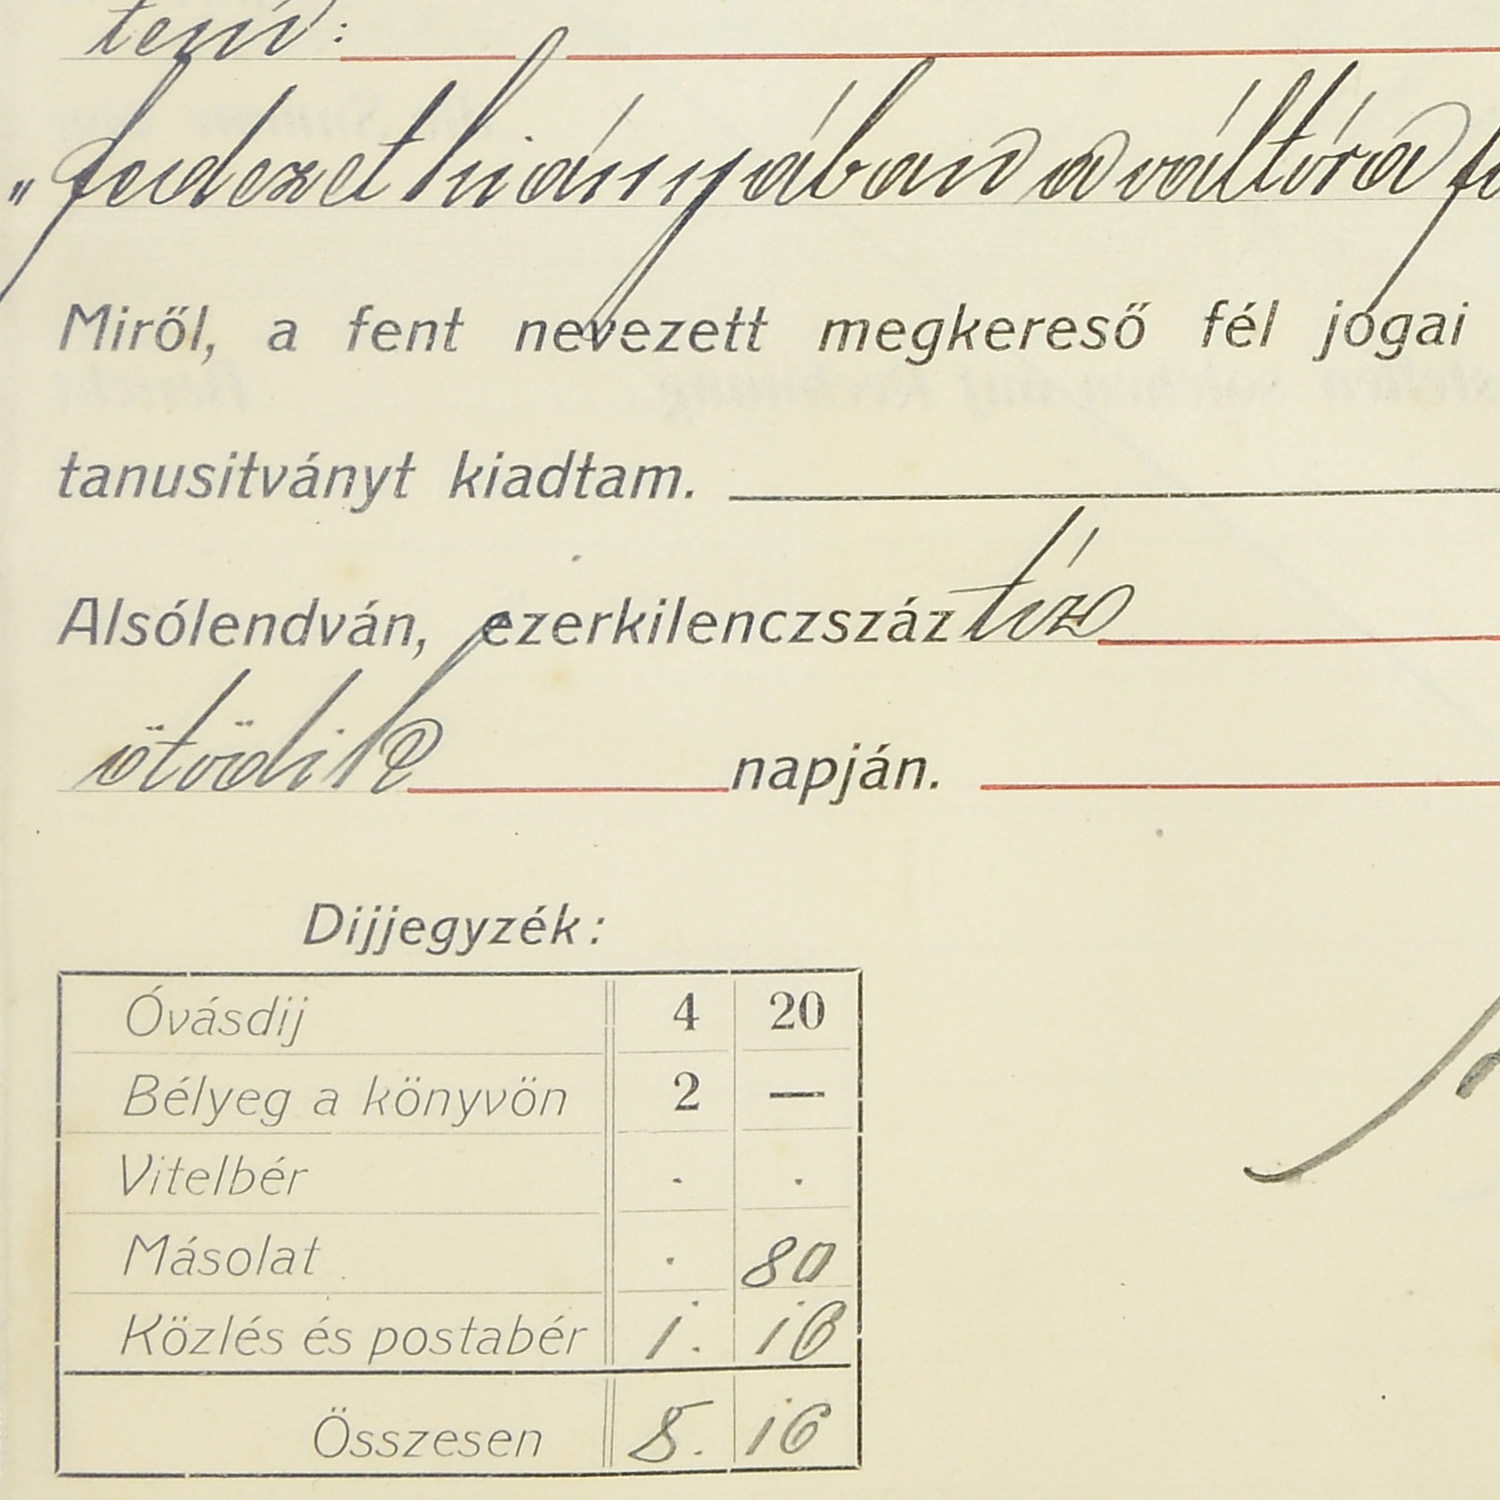 tend:
„fedezet hiányában a váltóra
Miről, a fent nevezett megkereső fél jogai
tanusitványt kiadtam.
Alsólendván, ezerkilenczszáztíz
ötödik napján.
Dijjegyzék:
Óvásdij 4 20
Bélyeg a könyvön 2 —
Vitelbér . .
Másolat . 80
Közlés és postabér 1. 16
Összesen 8. 16